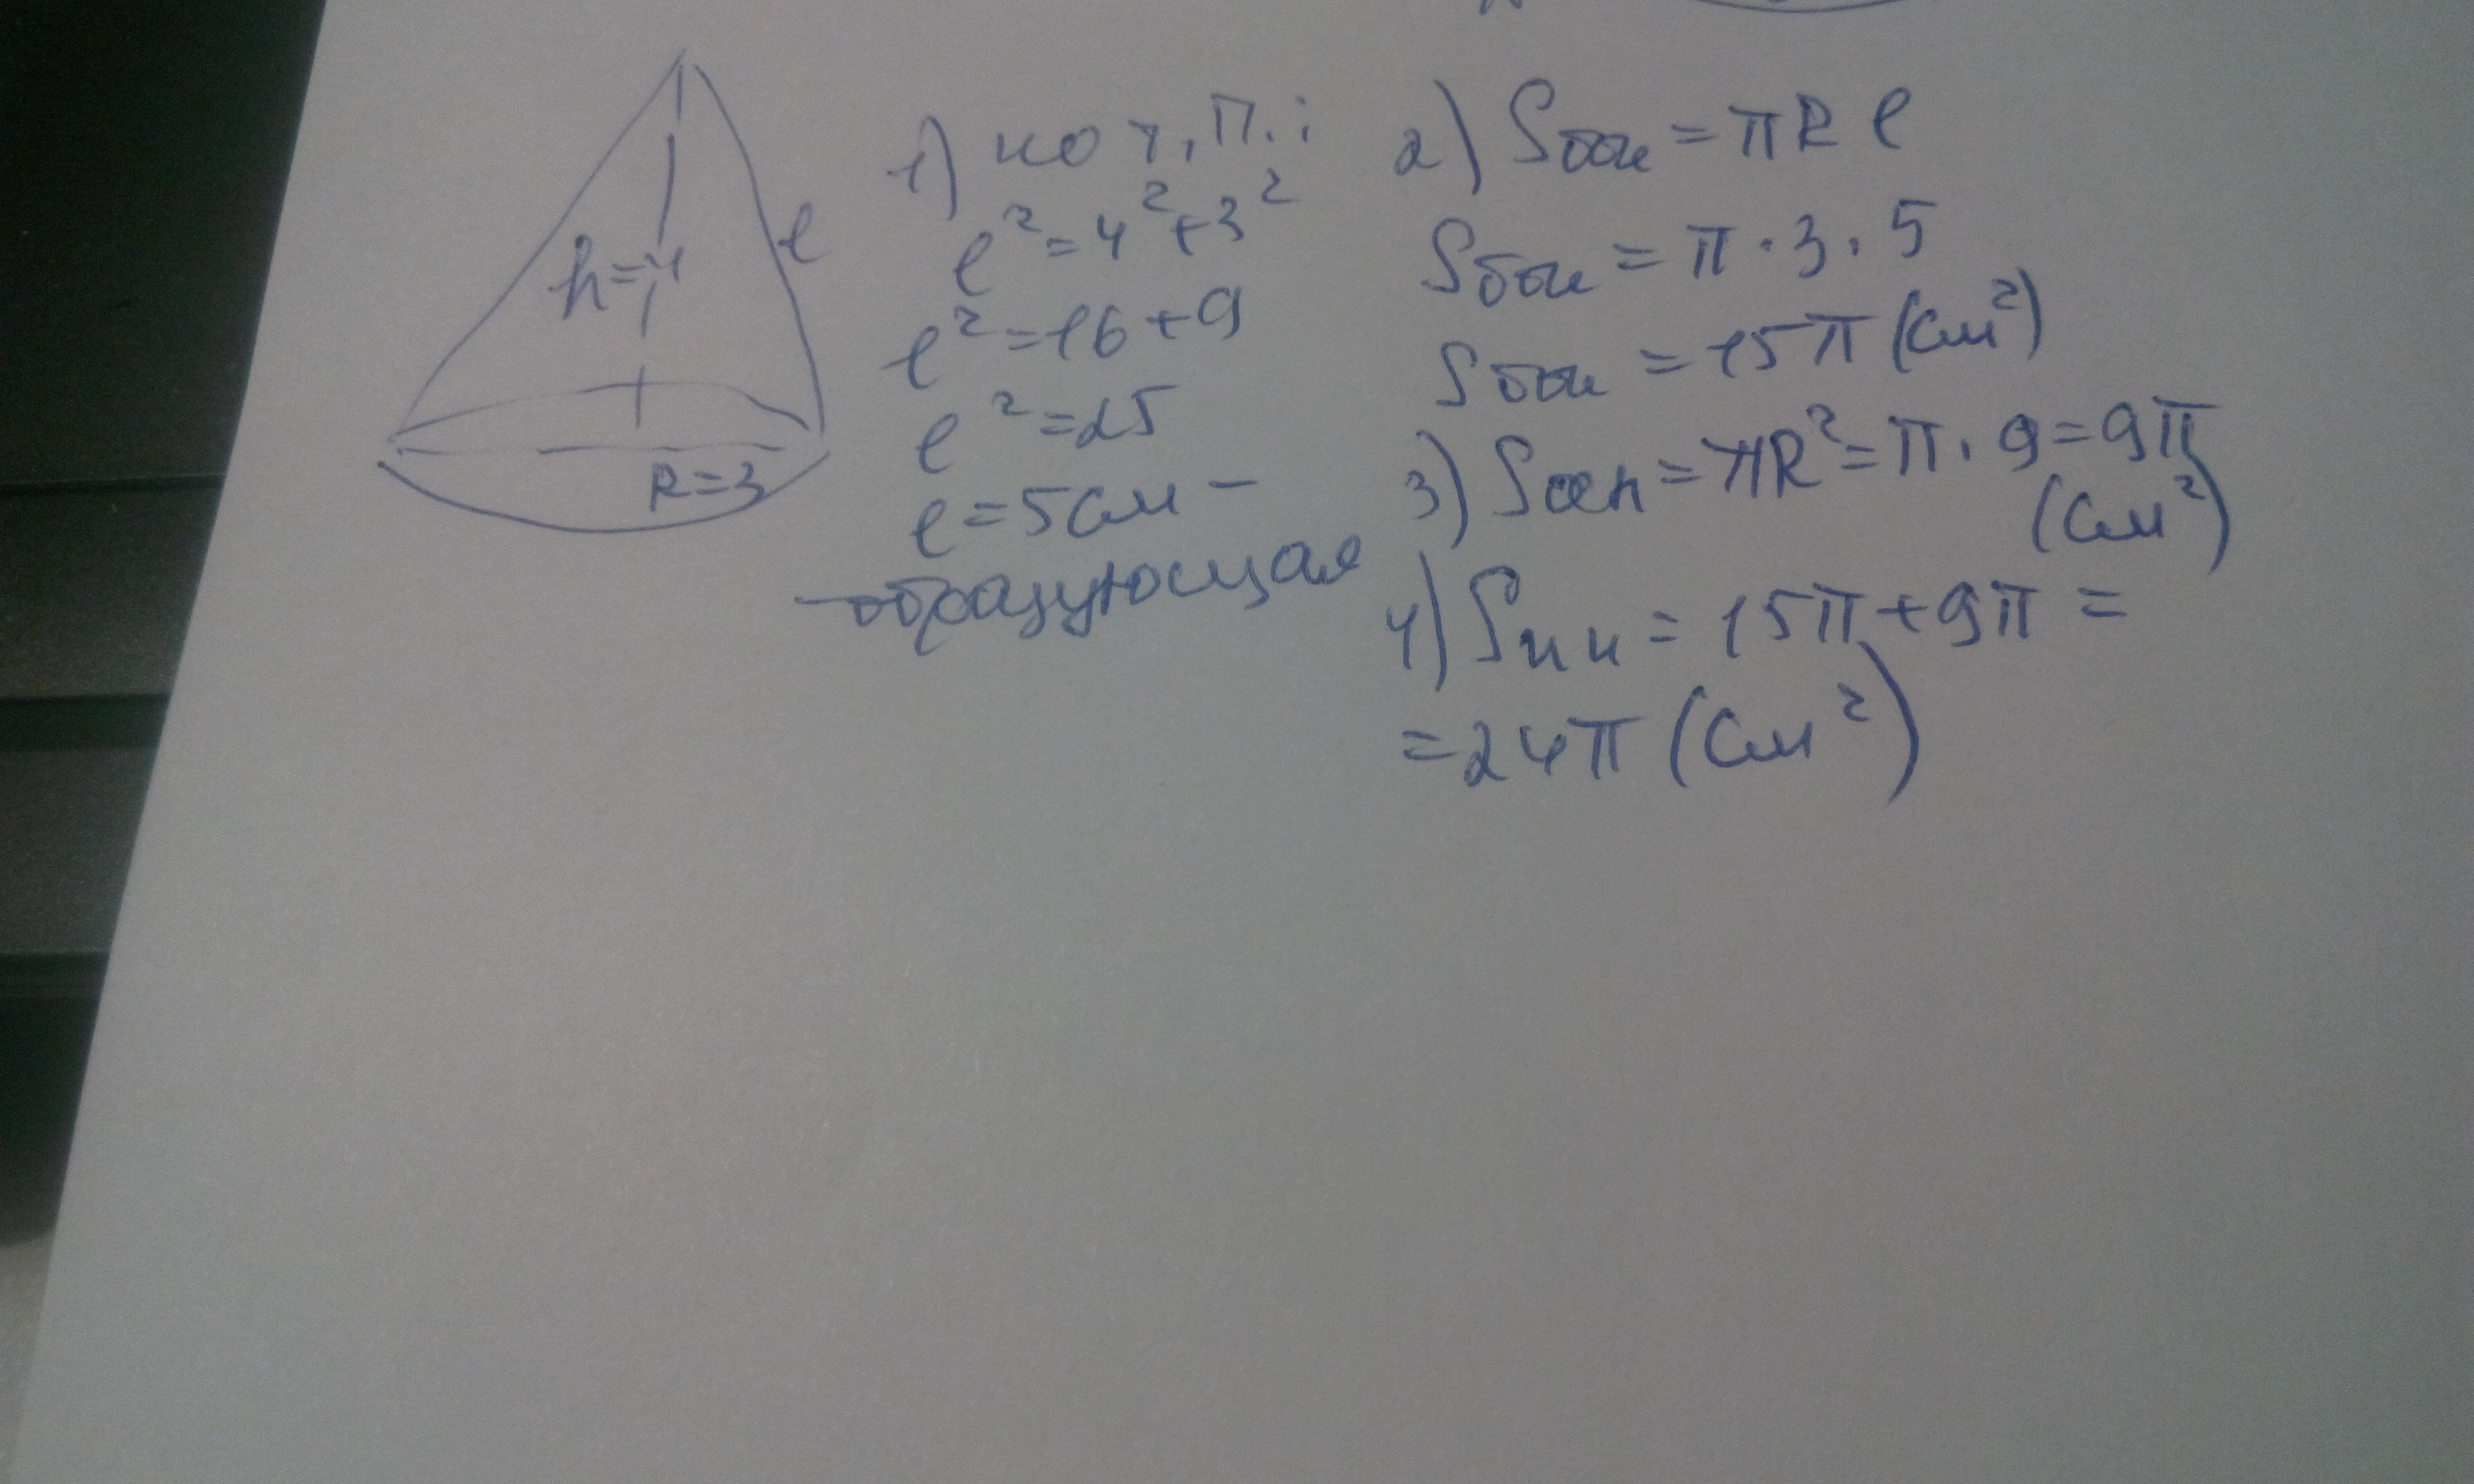 h=4
l
R=3
1) по т. П.:
l²=4²+3²
l²=16+9
l²=25
l=5см -
-образующая
2) Sбок = πRl
Sбок = π·3·5
Sбок = 15π (см²)
3) Sосн = πR² = π·9 = 9π
(см²)
4) Sпп = 15π + 9π =
= 24π (см²)